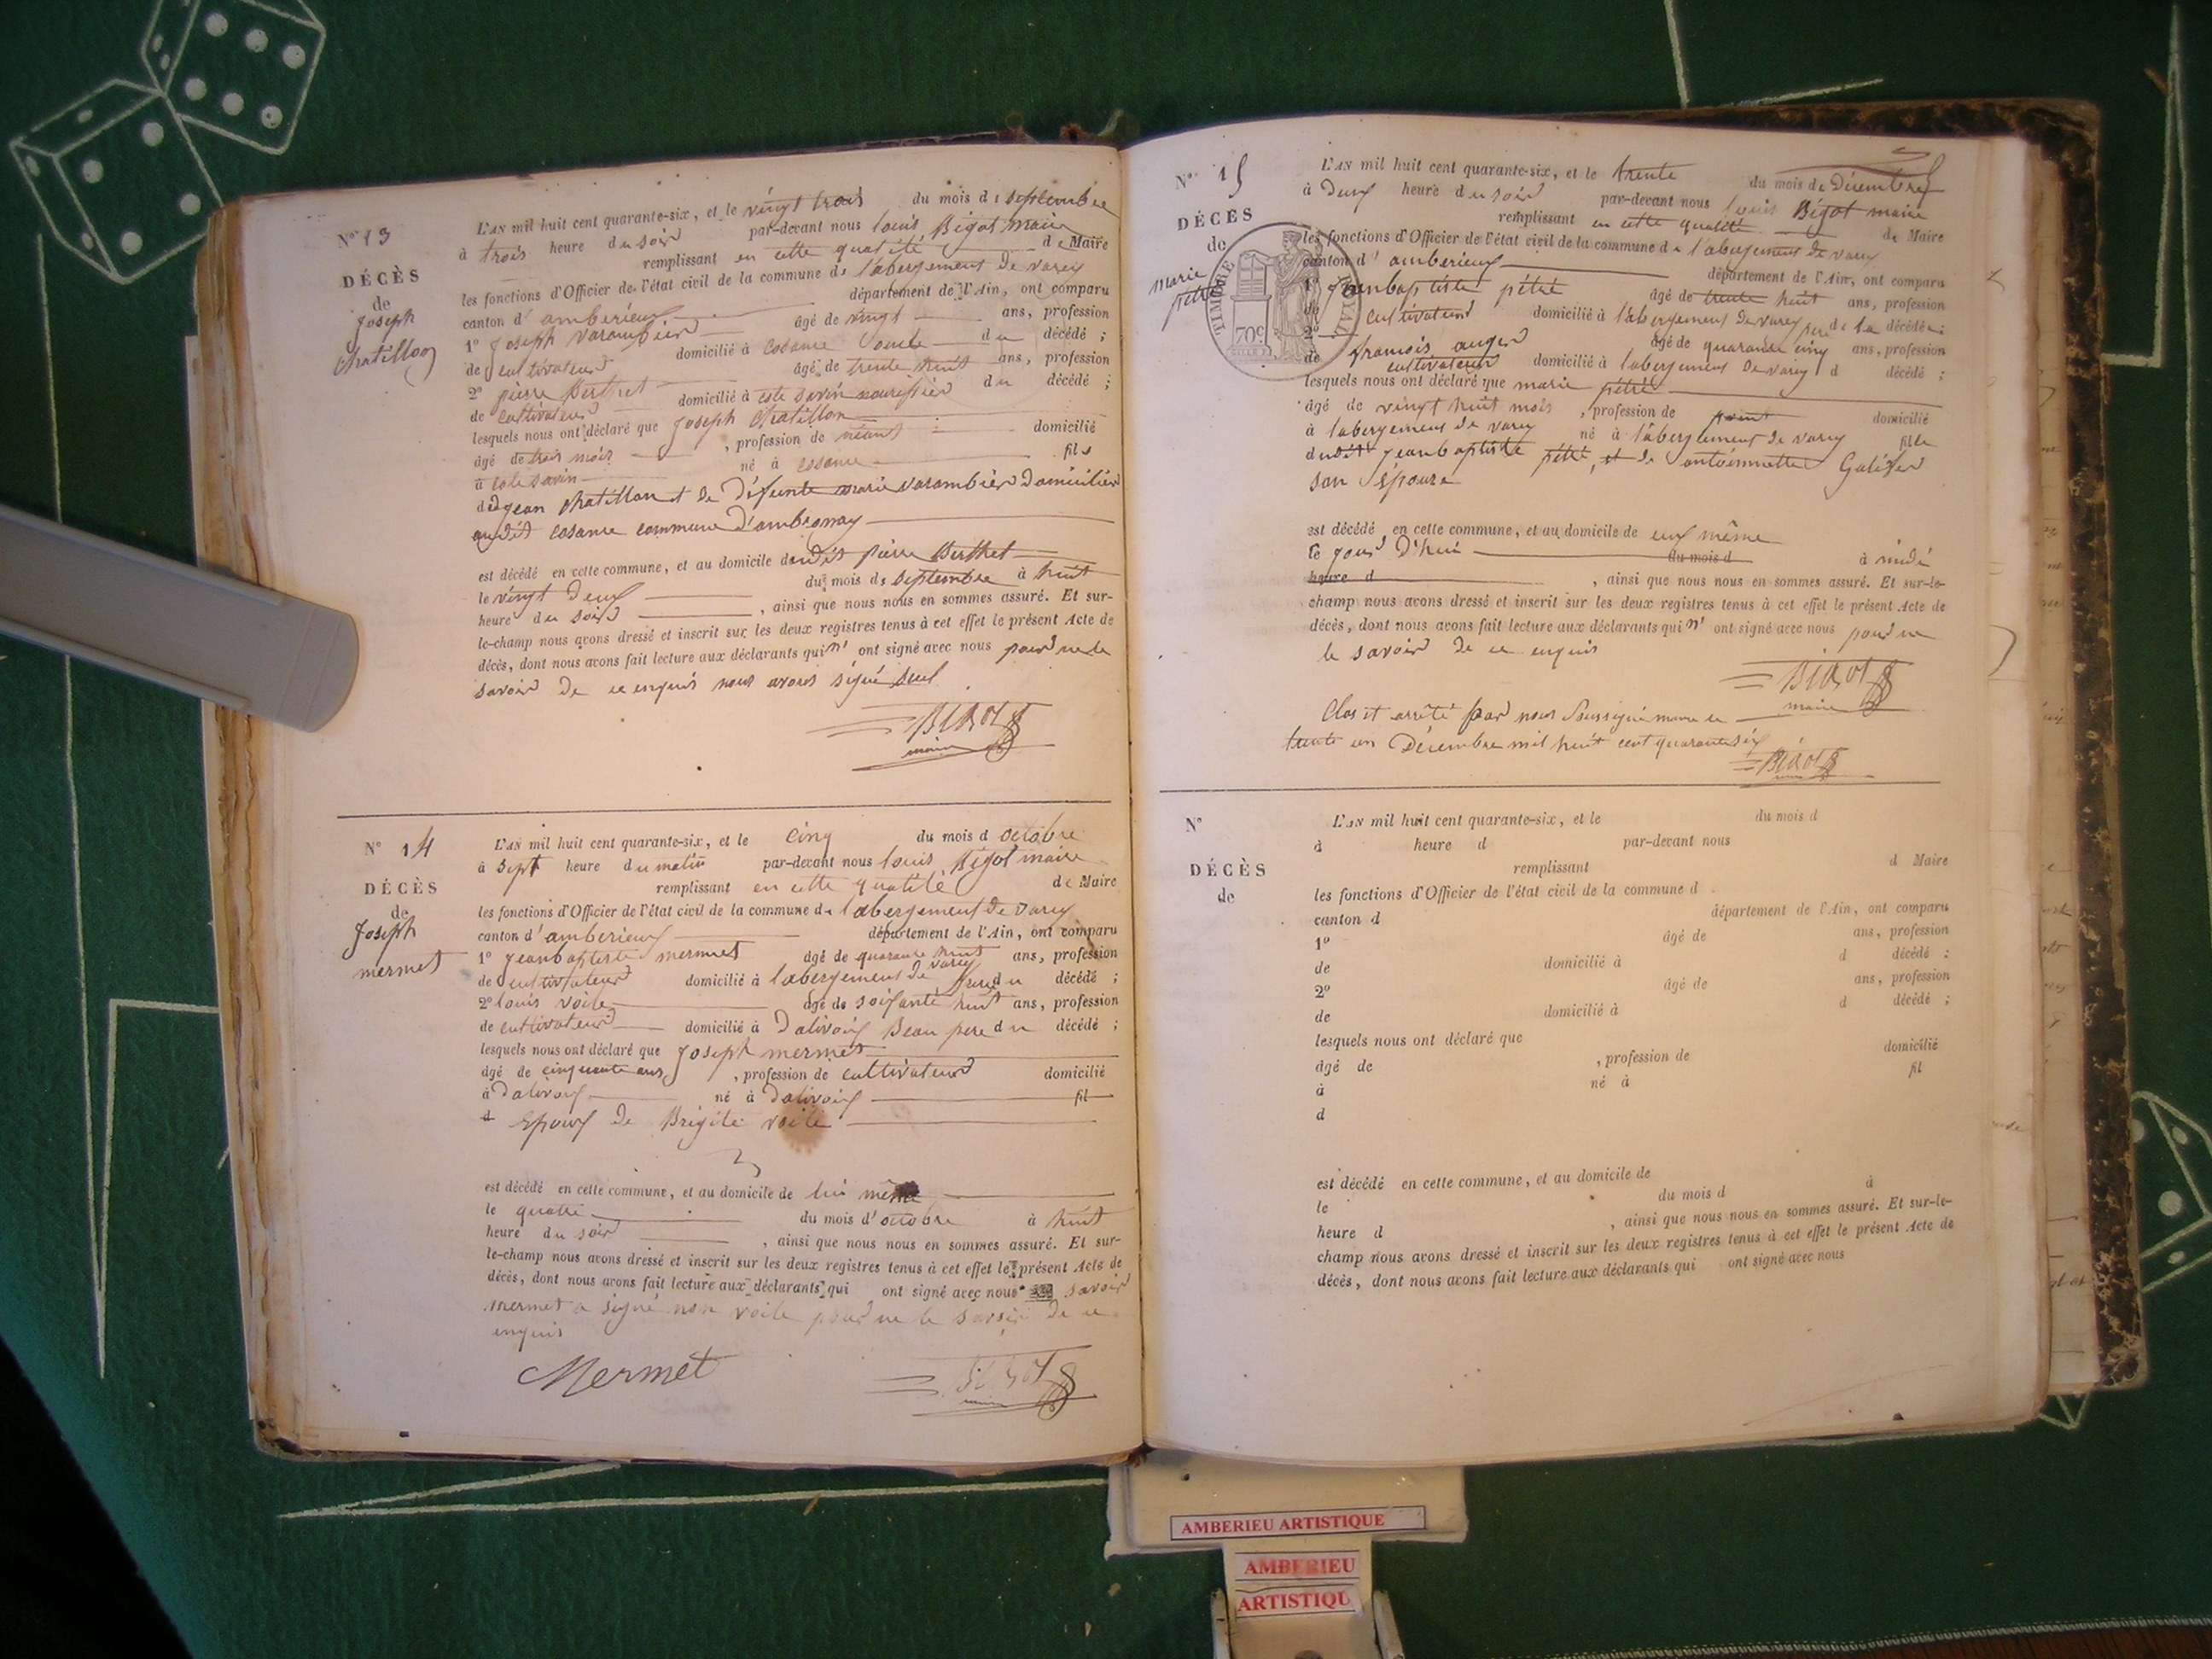 N° 13
DÉCÈS
de
Joseph
Chatillon
L'AN mil huit cent quarante-six, et le vingt trois du mois de septembre
à trois heure du soir par-devant nous louis Bigot maire
remplissant en cette qualité de Maire
les fonctions d'Officier de l'état civil de la commune de l'abergement de varey
canton d'amberieux département de l'Ain, ont comparu
1° Joseph varambier âgé de vingt ans, profession
de cultivateur domicilié à cosance oncle du décédé ;
2° pierre Berthet âgé de trente huit ans, profession
de cultivateur domicilié à cote savin nouricier du décédé ;
lesquels nous ont déclaré que Joseph Chatillon
âgé de trois mois , profession de néant domicilié
à cote savin né à cosance fils
de jean Chatillon et de défunte marie varambier domicilié
audit cosance commune d'ambronay
est décédé en cette commune, et au domicile dudit pierre Berthet
le vingt deux du mois de septembre à huit
heure du soir , ainsi que nous nous en sommes assuré. Et sur-
le-champ nous avons dressé et inscrit sur les deux registres tenus à cet effet le présent Acte de
décès, dont nous avons fait lecture aux déclarants qui n' ont signé avec nous pour ne le
savoir de ce enquis nous avons signé seul
BIGOT
maire
N° 14
DÉCÈS
de
Joseph
mermet
L'AN mil huit cent quarante-six, et le cinq du mois d octobre
à sept heure du matin par-devant nous louis Bigot maire
remplissant en cette qualité de Maire
les fonctions d'Officier de l'état civil de la commune de l'abergement de varey
canton d'amberieux département de l'Ain, ont comparu
1° Jeanbaptiste mermet âgé de quarante huit ans, profession
de cultivateur domicilié à l'abergement de varey frere du décédé ;
2° louis voile âgé de soixante huit ans, profession
de cultivateur domicilié à Dalivoix Beau pere du décédé ;
lesquels nous ont déclaré que Joseph mermet
âgé de cinquante ans , profession de cultivateur domicilié
à Dalivoix né à Dalivoix fil
d Epoux de Brigite voile
est décédé en cette commune, et au domicile de lui même
le quatre du mois d'octobre à huit
heure du soir , ainsi que nous nous en sommes assuré. Et sur-
le-champ nous avons dressé et inscrit sur les deux registres tenus à cet effet le présent Acte de
décès, dont nous avons fait lecture aux déclarants qui ont signé avec nous savoir
mermet a signé non voile pour ne le savoir de ce
enquis
Mermet
BIGOT
maire
N° 15
DÉCÈS
de
marie
pétré
TIMBRE ROYAL
70 c
L'AN mil huit cent quarante-six, et le trente du mois de Décembre
à Deux heure du soir par-devant nous louis Bigot maire
remplissant en cette qualité de Maire
les fonctions d'Officier de l'état civil de la commune de l'abergement de varey
canton d'amberieux département de l'Ain, ont comparu
1° Jeanbaptiste pétré âgé de trente huit ans, profession
de cultivateur domicilié à l'abergement de varey pere de la décédée ;
2° francois auger âgé de quarante cinq ans, profession
de cultivateur domicilié à l'abergement de varey d décédé ;
lesquels nous ont déclaré que marie pétré
âgé de vingt huit mois , profession de point domicilié
à l'abergement de varey né à l'abergement de varey fille
dudit Jeanbaptiste pétré, et de antoinnette
son épouse
est décédé en cette commune, et au domicile de eux même
le jour D'hui du mois d à midi
heure d , ainsi que nous nous en sommes assuré. Et sur-le-
champ nous avons dressé et inscrit sur les deux registres tenus à cet effet le présent Acte de
décès, dont nous avons fait lecture aux déclarants qui n' ont signé avec nous pour ne
le savoir de ce enquis
BIGOT
maire
Clos et arrêté par nous Soussigné maire ce
trente un Décembre mil huit cent quarante six
BIGOT
N°
DÉCÈS
de
L'AN mil huit cent quarante-six, et le du mois d
à heure d par-devant nous
remplissant d Maire
les fonctions d'Officier de l'état civil de la commune d
canton d département de l'Ain, ont comparu
1° âgé de ans, profession
de domicilié à d décédé ;
2° âgé de ans, profession
de domicilié à d décédé ;
lesquels nous ont déclaré que
âgé de , profession de domicilié
à né à fil
d
est décédé en cette commune, et au domicile de
le du mois d à
heure d , ainsi que nous nous en sommes assuré. Et sur-le-
champ nous avons dressé et inscrit sur les deux registres tenus à cet effet le présent Acte de
décès, dont nous avons fait lecture aux déclarants qui ont signé avec nous
AMBERIEU ARTISTIQUE
AMBERIEU
ARTISTIQU